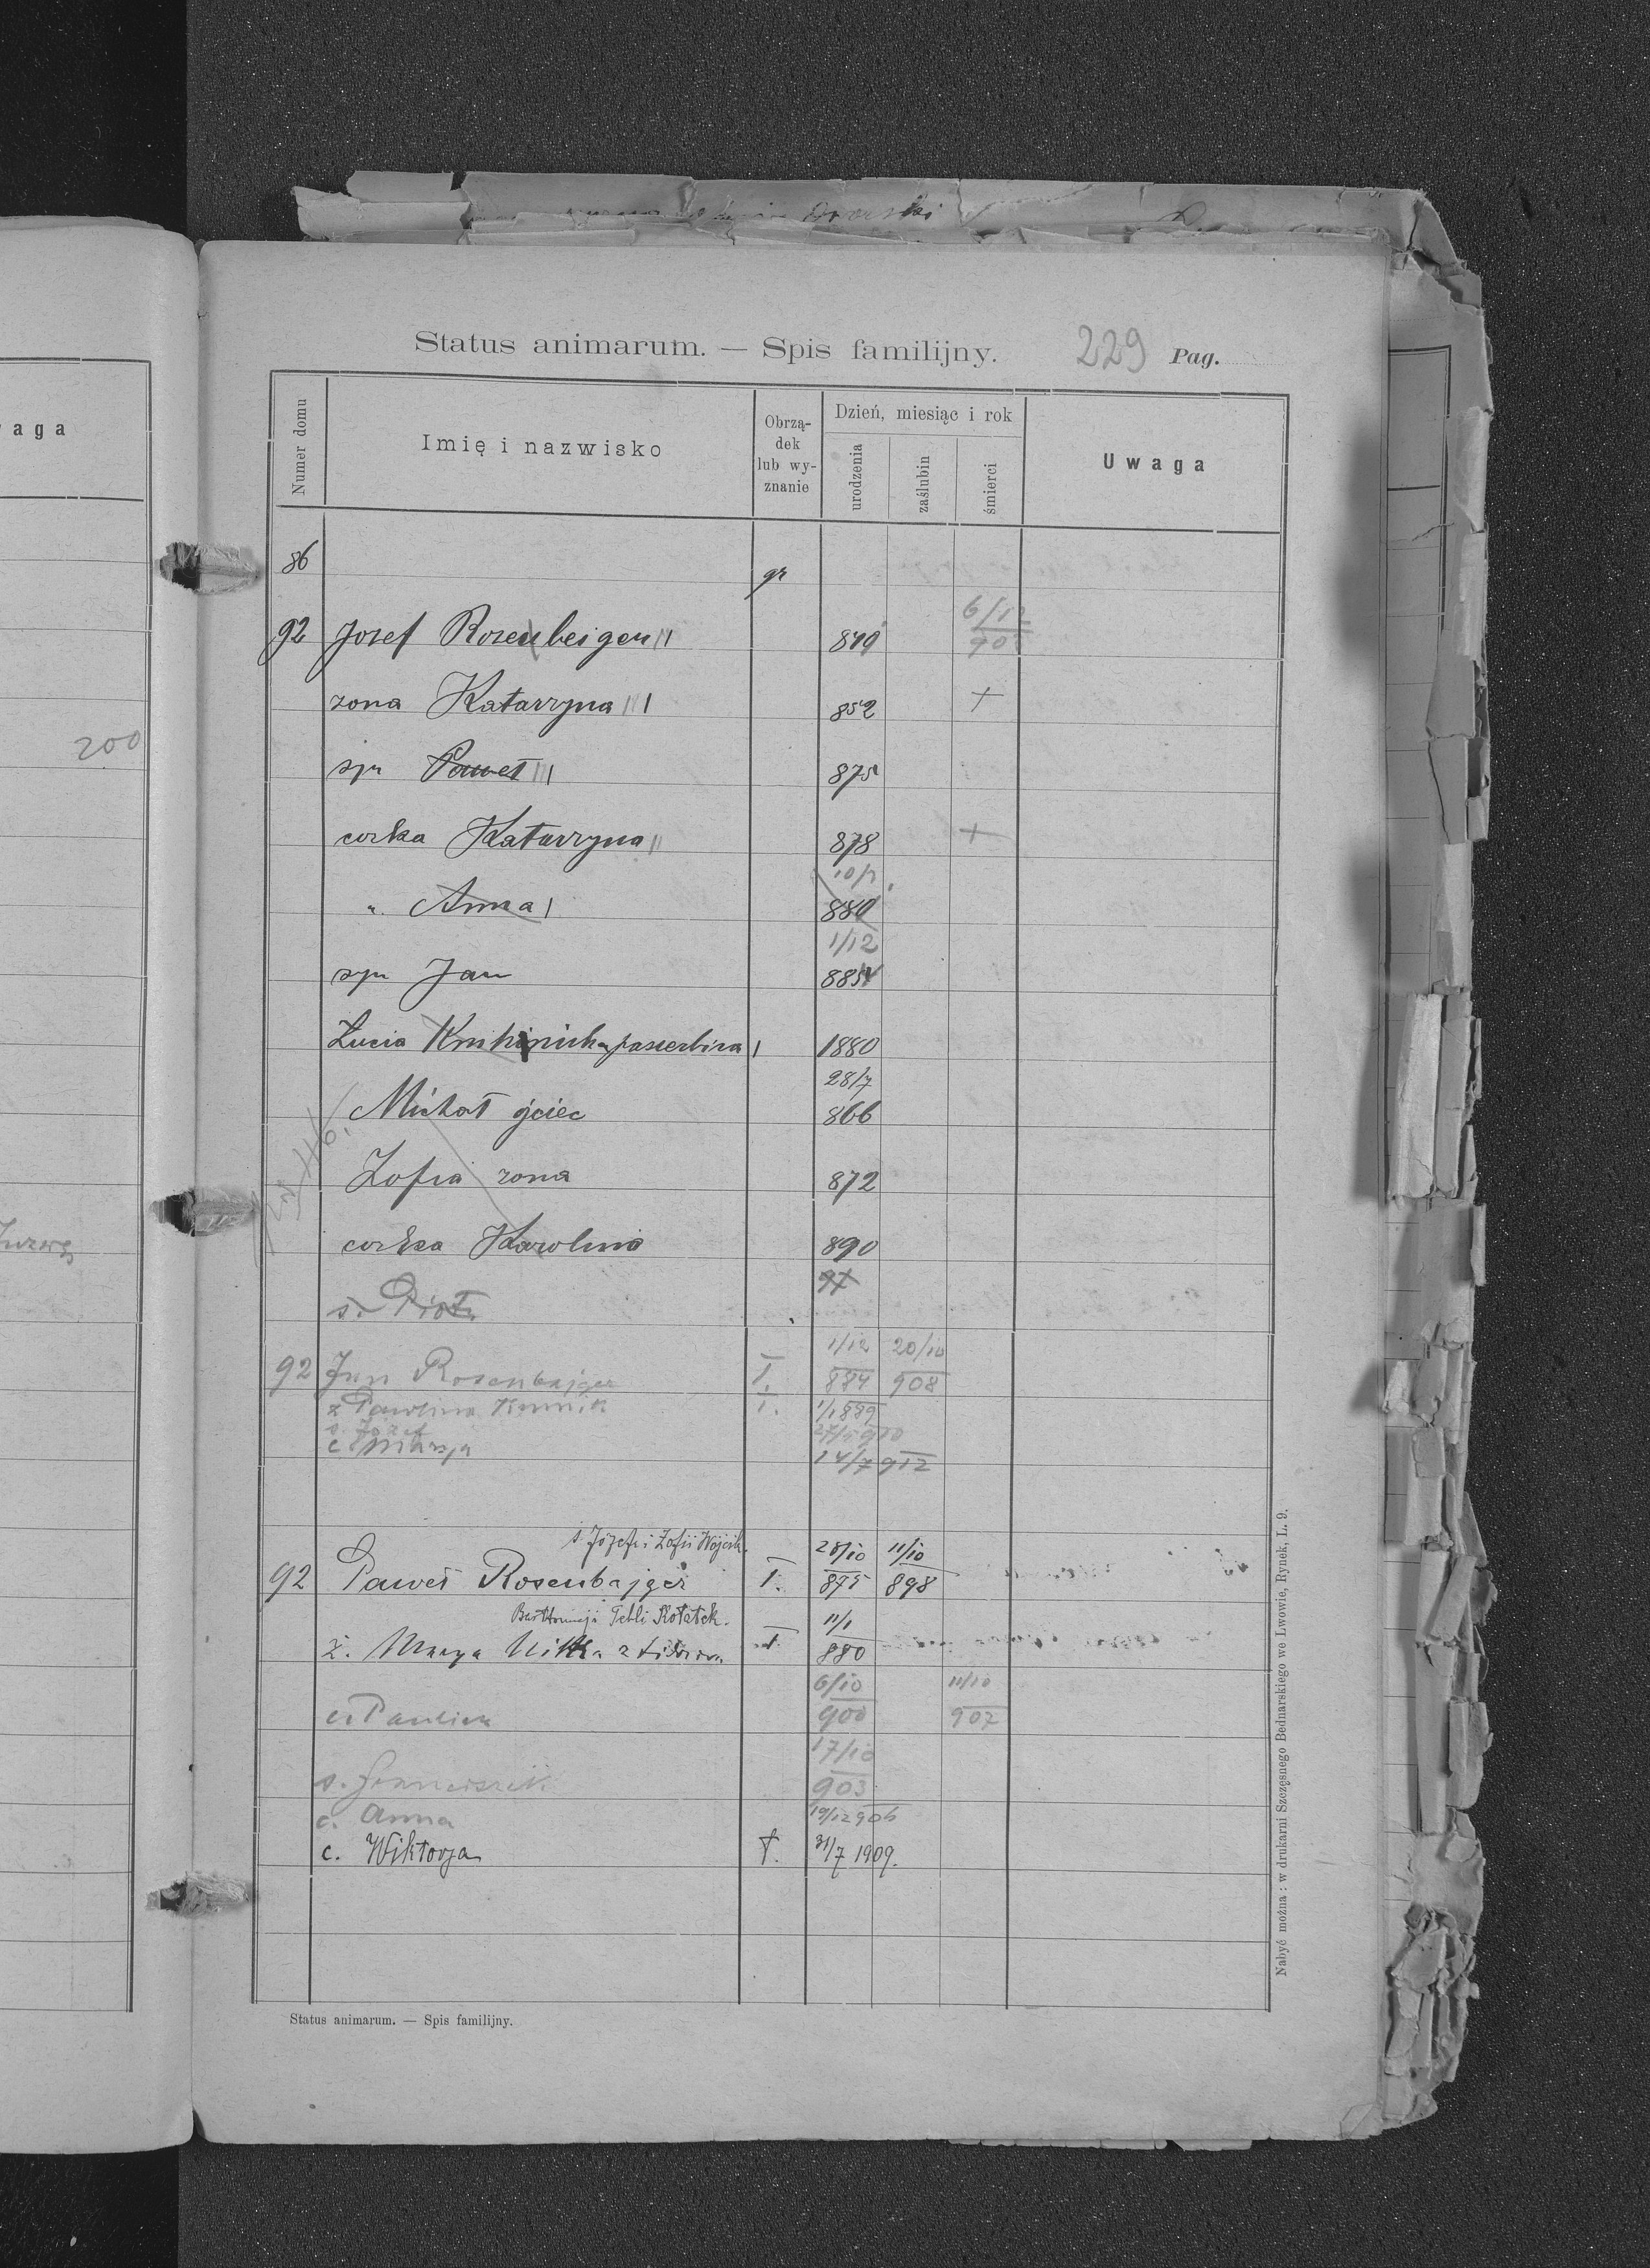 aga
200
Status animarum. — Spis familijny. 229 Pag.
Numer domu
Imię i nazwisko
Obrzą-
dek
lub wy-
znanie
Dzień, miesiąc i rok
urodzenia
zaślubin
śmierci
Uwaga
86 gr
6/12
92 Josef Rosenbeiger 849 905
zona Katarzyna 852 +
syn Paweł 875
corka Katarzyna 878 +
10/7
" Anna 880
1/12
syn Jan 885
Łucia pasierbica 1880
28/7
Michał ojciec 866
Zofia zona 872
corka Karolina 890
97
s. Piotr
1/12 20/10
92 Jan Rosenbajger T. 884 908
ż Pawlina 1/1 889
s. Józef 27/5 910
c Marya 14/7 912
s. Józefa i Zofii Wójcik
28/10 11/10
92 Paweł Rosenbajger T. 875 898
Bartłomieja Tekli Kołatek.
11/1
ż. Marya T 880
6/10 11/10
c. Paulina 900 907
17/10
s. Franciszek 903
c. Anna 19/12 906
c. Wiktorja T. 31/7 1909.
Status animarum. — Spis familijny.
Nabyć można: w drukarni Szczęsnego Bednarskiego we Lwowie, Rynek, L. 9.